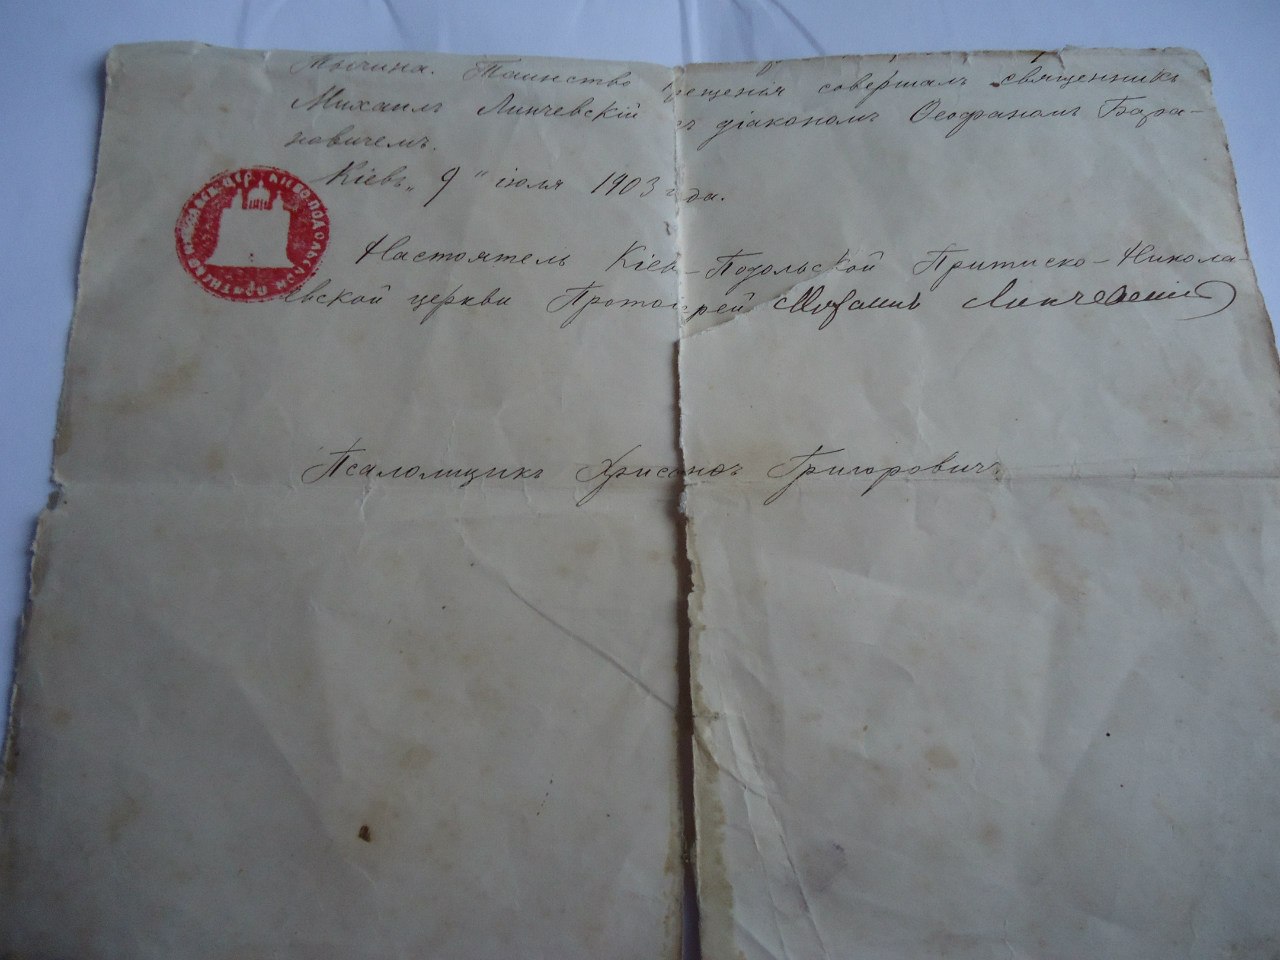 Таинство крещенія совершалъ священникъ
Михаилъ Линчевскій съ діакономъ Ѳеофаномъ Бара-
новичемъ.
Кіевъ, „9" іюля 1903 года.
Настоятель Кіево-Подольской Притиско-Никола-
евской церкви Протоіерей Михаилъ Линчевскій
Псаломщикъ Хрисанѳъ Григоровичъ